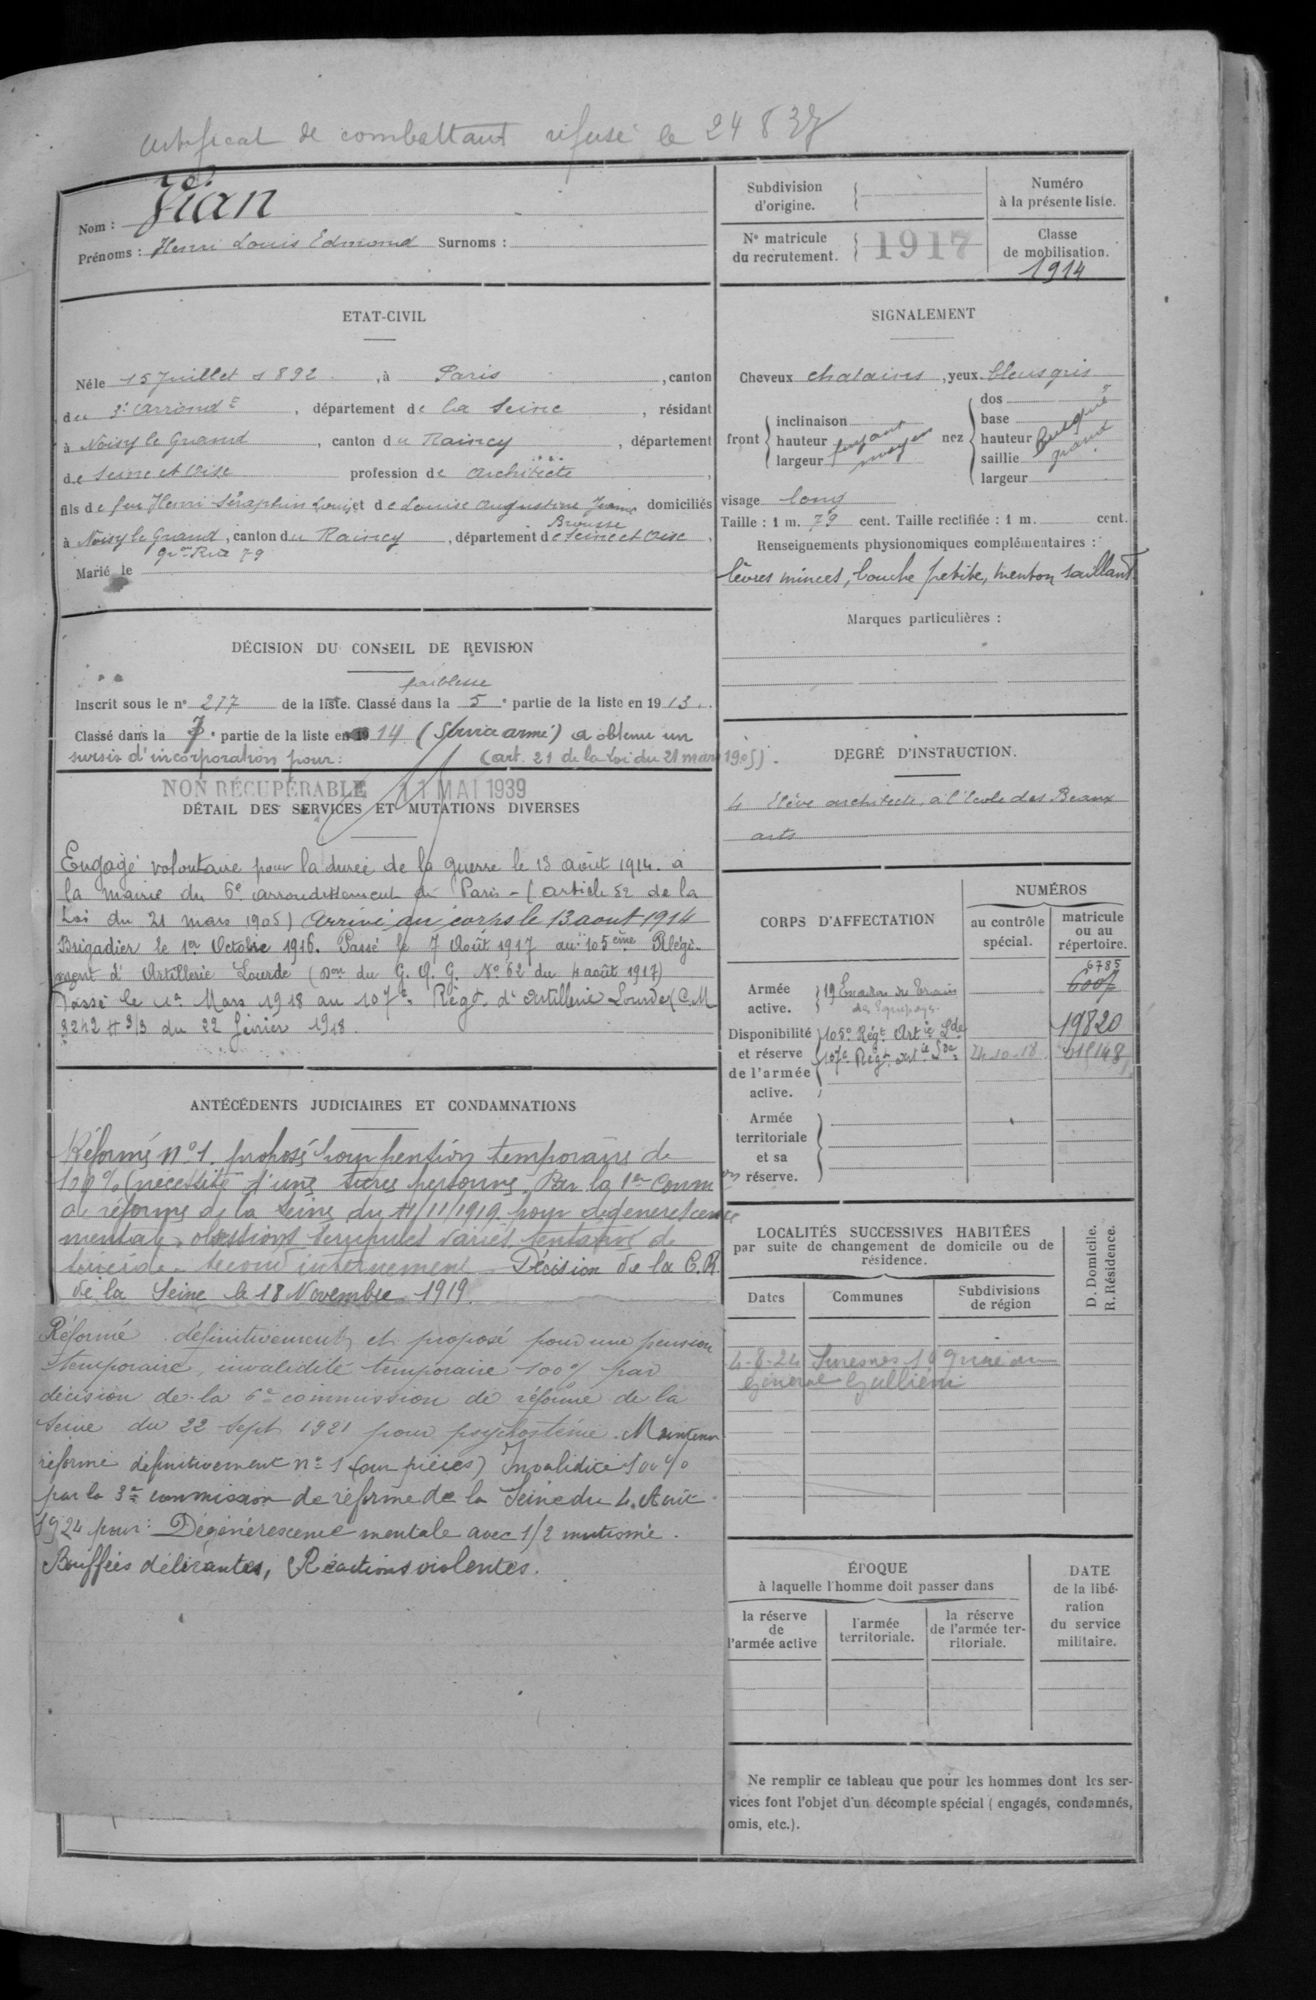 Certificat de combattant refusé le 24 8 37
Nom : Jian
Prénoms : Henri Louis Edmond Surnoms :
Subdivision
d'origine.
Numéro
à la présente liste.
N° matricule
du recrutement.
1917
Classe
de mobilisation.
1914
ETAT-CIVIL
Né le 15 Juillet 1892, à Paris, canton
du 3e arrondt, département de la Seine, résidant
à Noisy le Grand, canton du Raincy, département
de Seine et Oise profession de architecte
fils de feu Henri Séraphin Louis et de Louise Augustine Jeanne Brousse domiciliés
à Noisy le Grand, canton du Raincy, département de Seine et Oise,
Gde Rue 79
Marié le
SIGNALEMENT
Cheveux chatains, yeux bleus gris
front inclinaison
hauteur fuyant
largeur moyen
nez dos
base
hauteur busqué
saillie grand
largeur
visage long
Taille : 1 m. 79 cent. Taille rectifiée : 1 m. cent.
Renseignements physionomiques complémentaires :
lèvres minces, bouche petite, menton saillant
Marques particulières :
DÉCISION DU CONSEIL DE REVISION
faiblesse
Inscrit sous le n° 217 de la liste. Classé dans la 5e partie de la liste en 1913.
Classé dans la partie de la liste en 1914 (Service armé) a obtenu un
sursis d'incorporation pour: (art. 21 de la Loi du 21 mars 1905).
NON RÉCUPÉRABLE 11 MAI 1939
DÉTAIL DES SERVICES ET MUTATIONS DIVERSES
Engagé volontaire pour la durée de la guerre le 13 août 1914. à
la mairie du 6e arrondissement de Paris - (article 52 de la
Loi du 21 mars 1905) arrivé au corps le 13 aout 1914
Brigadier le 1er Octobre 1916. Passé le 7 Août 1917 au 105ème Régi-
ment d'Artillerie Lourde (Don du G. Q. G. No 62 du 4 août 1917)
Passé le 1er Mars 1918 au 107e Régt d'Artillerie Lourde (C.M
3242 3/3 du 22 février 1918.
DEGRÉ D'INSTRUCTION.
4 Elève architecte, à l'école des Beaux
arts
CORPS D'AFFECTATION
NUMÉROS
au contrôle
spécial.
matricule
ou au
répertoire.
Armée
active.
19 Escadron du Train
des Equipages.
6785
6007
Disponibilité
et réserve
de l'armée
active.
105e Régt Artie Lde
19820
107e Régt Artie Lde 24-10-18
Armée
territoriale
et sa
réserve.
ANTÉCÉDENTS JUDICIAIRES ET CONDAMNATIONS
Réformé n°1. proposé pour pension temporaire de
100% (nécessité d'une tierce personne. Par la 1ere Comm on
de réforme de la Seine du 11/1919 pour dégénérescence
mentale obsessions scrupules variés tentative de
suicide. second internement - Décision de la C.R.
de la Seine le 18 Novembre 1919.
Réformé définitivement et proposé pour une pension
temporaire, invalidité temporaire 100% par
décision de la 6e commission de réforme de la
Seine du 22 Sept 1921 pour psychasténie. Maintenu
réformé définitivement n° 1 (sur pièces) Invalidité 100%
par la 3e commission de réforme de la Seine du 4 Août
1924 pour: Dégénérescence mentale avec 1/2 mutisme.
Bouffées délirantes, Réactions violentes.
LOCALITÉS SUCCESSIVES HABITÉES
par suite de changement de domicile ou de
résidence.
D. Domicile.
R. Résidence.
Dates
Communes
Subdivisions
de région
4-8-24 Suresnes 19 quai du
Général Gallieni
ÉPOQUE
à laquelle l'homme doit passer dans
la réserve
de
l'armée active
l'armée
territoriale.
la réserve
de l'armée ter-
ritoriale.
DATE
de la libé-
ration
du service
militaire.
Ne remplir ce tableau que pour les hommes dont les ser-
vices font l'objet d'un décompte spécial ( engagés, condamnés,
omis, etc.).